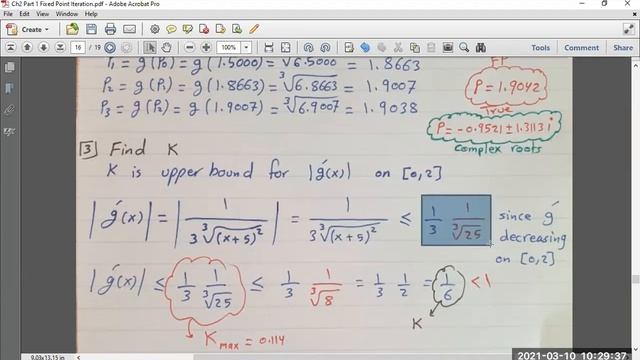 Ch2 Part 1 Fixed Point Iteration.pdf - Adobe Acrobat Pro
Create
16 / 19 100%
P₁ = g(P₀) = g(1.5000) = ∛6.5000 = 1.8663
P₂ = g(P₁) = g(1.8663) = ∛6.8663 = 1.9007
P₃ = g(P₂) = g(1.9007) = ∛6.9007 = 1.9038
FP
P = 1.9042
True
P = -0.9521 ± 1.3113 i
Complex roots
3 Find K
K is upper bound for |g′(x)| on [0,2]
|g′(x)| = |1/(3∛(x+5)²)| = 1/(3∛(x+5)²) ≤ 1/3 1/∛25 since g′
decreasing
on [0,2]
|g′(x)| ≤ 1/3 1/∛25 ≤ 1/3 1/∛8 = 1/3 1/2 = 1/6 < 1
K
Kmax = 0.114
9.03 x 13.15 in
2021-03-10 10:29:37